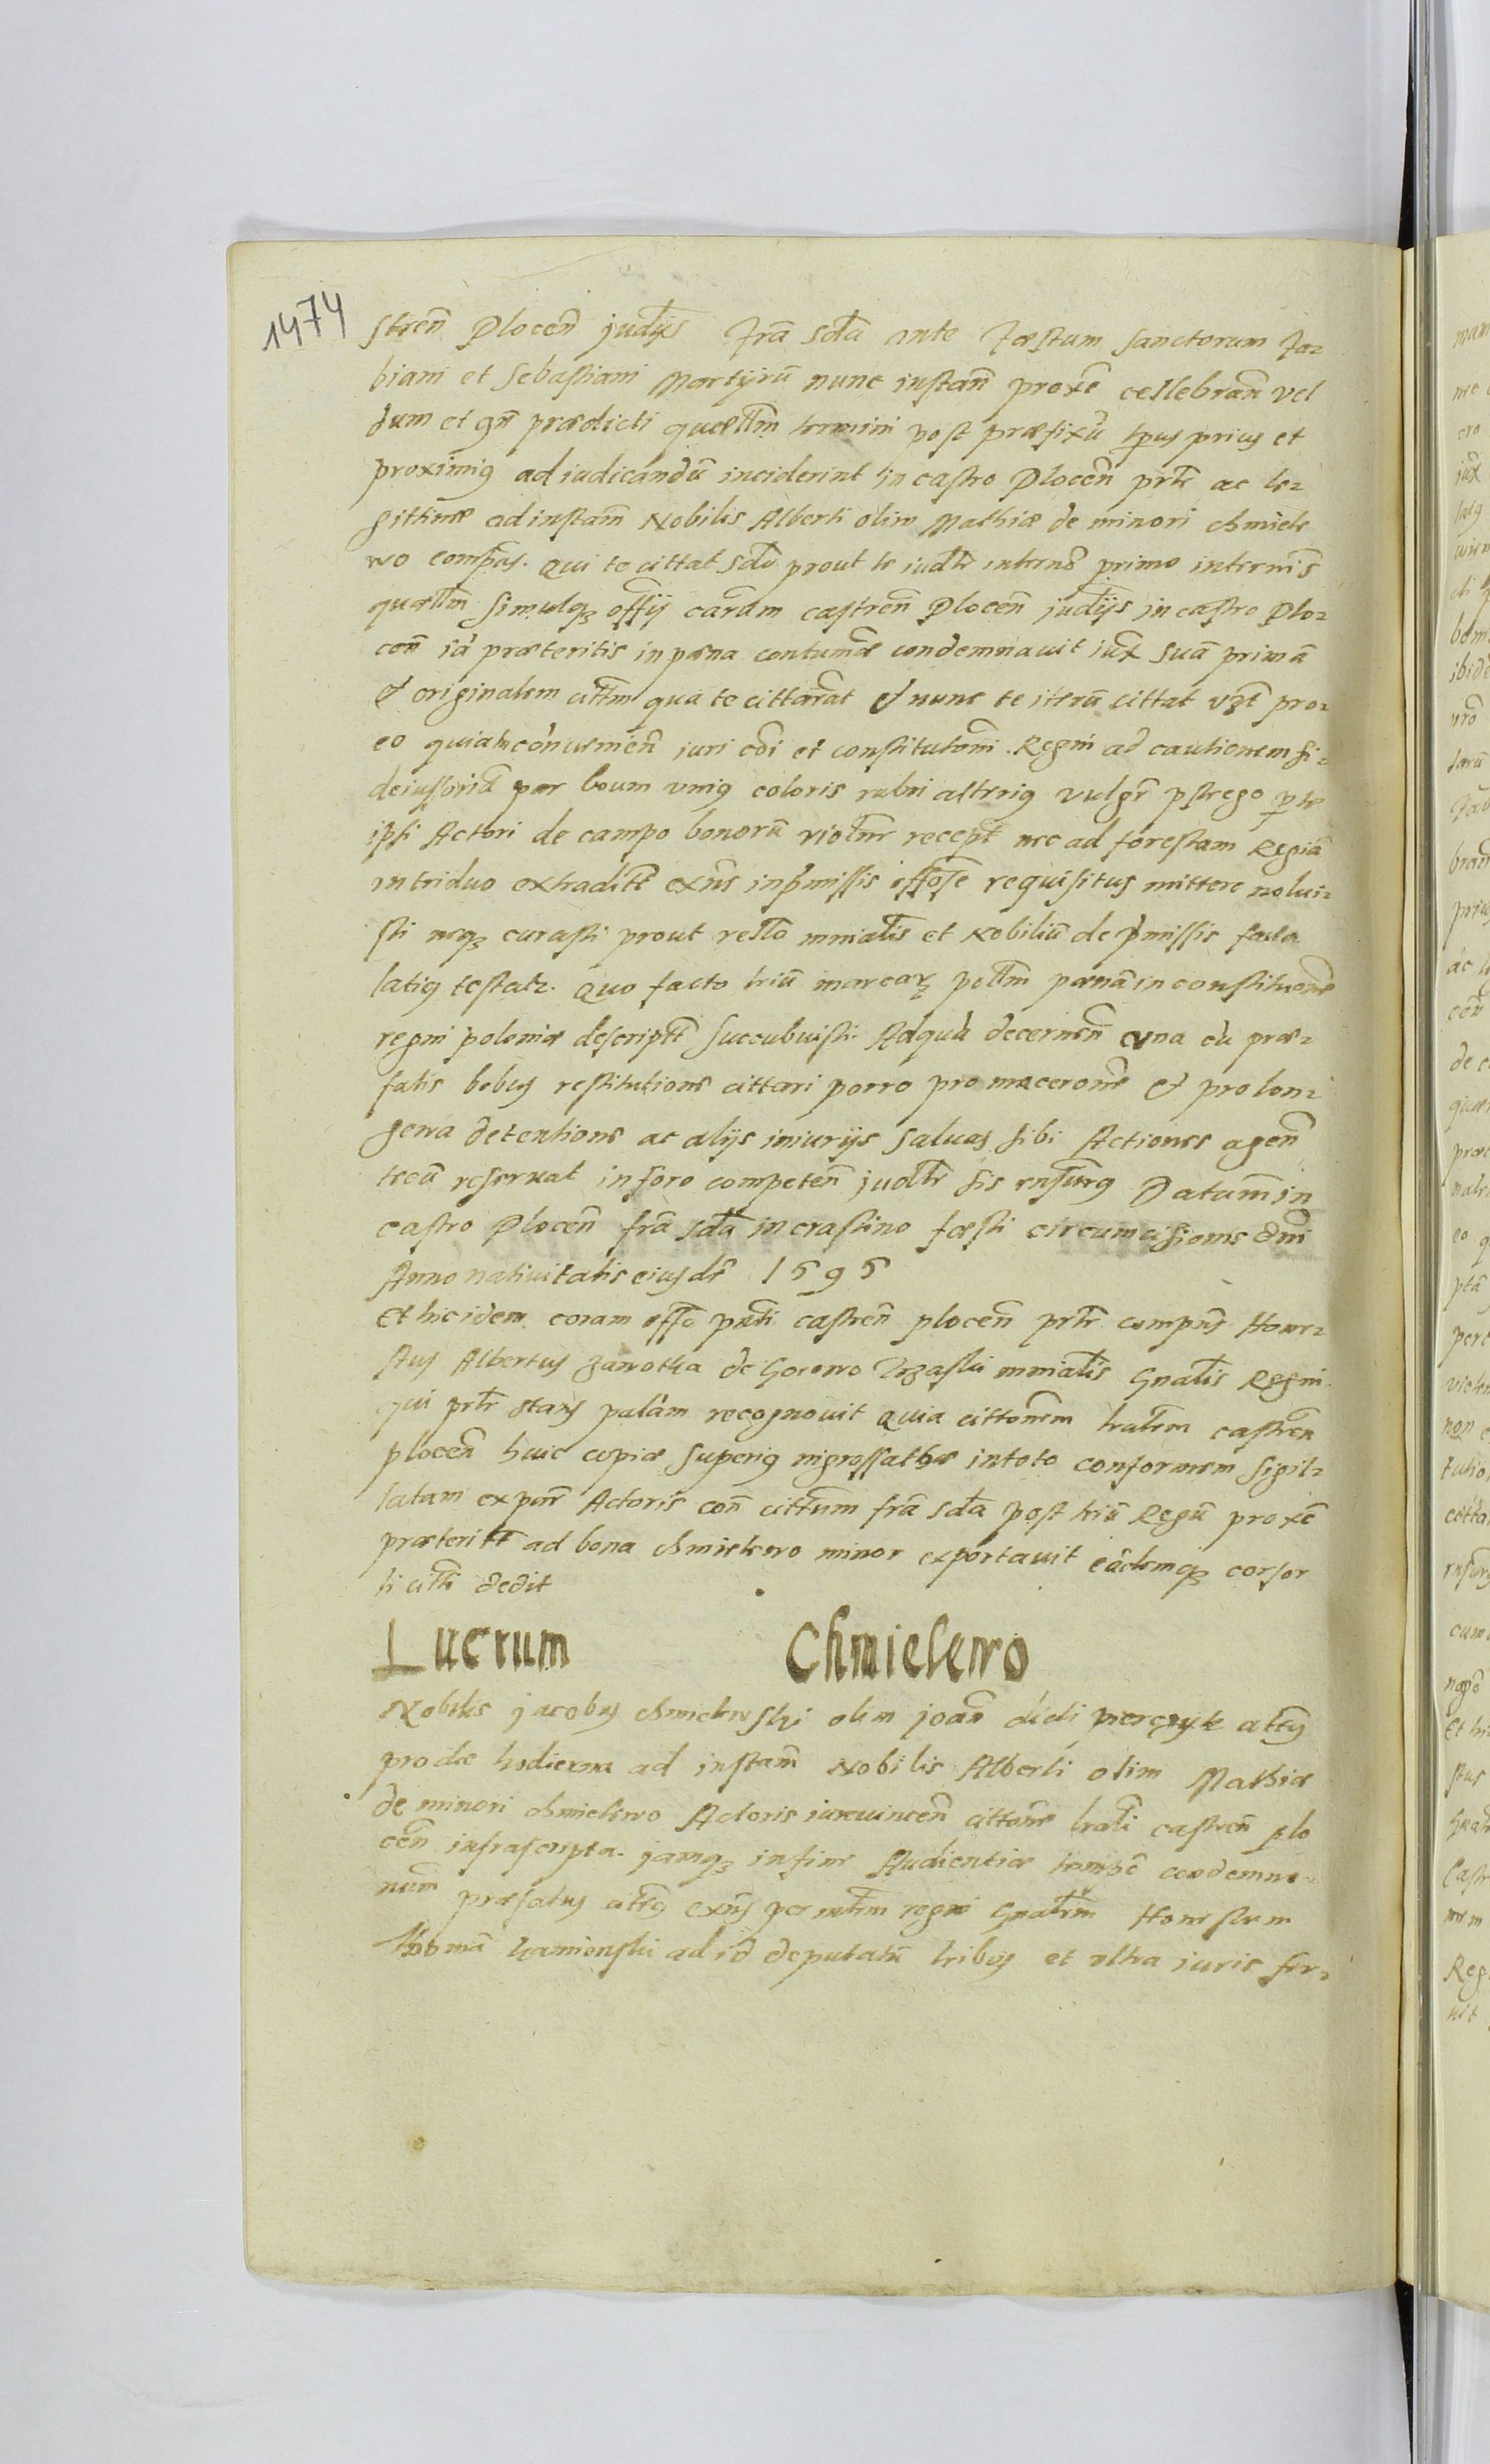 1474
stren̄ Plocen̄ judijs fra sda ante Fæstum Sanctorum Fa-
biani et Sebastiani Martijrū nunc instan̄ proxē cellebran̄ vel
dum et gn̄ prædicti quærelm̄ termini post præfixū tpus prius et
proximiq ad iudicandū inciderint in castro Plocen̄ prt̄r ac le-
gittimæ ad instan̄ Nobilis Alberti olim Mathiæ de minori chmiele
wo compās. Qui te cittat sdō prout te iudtr̄ in termō primo in termīs
quærelm̄ simulqȝ officij carum castren̄ Plocen̄ judijs in castro Plo-
cen̄ iā præteritis in pæna contumāæ condemnauit iux̄ suā primā
et originalem cittm̄ qua te cittarat et nunc te iterū cittat vȝt pro-
eo quia tu cōnueniēn iuri cōi et constitutōni Regni ad cautionem fi-
deiussoriā par boum vnius coloris rubri alterius vulgr̄ pstrego per te
ipsi Actori de campo bonorū violtr̄ recept̄ nec ad forestam Regiā
in triduo extraditt̄ exn̄s in p̄missis offōse requisitus mittere nolui-
sti neqȝ curasti prout rellō mniālis et Nobiliū de p̄missis facta
latiq testatr. Quo facto triū marcarȝ pollm̄ pænā in constitutionē
regni poloniæ descriptt̄ succubuisti. Ad quā decernen̄ vna cū præ-
fatis bobus restitutione cittari porro pro maceronē et pro lon-
geua detentione ac alijs iniurijs saluas sibi Actiones agen̄
tecū reseruat in foro competen̄ judtr̄ sis rnsurq Datum in
castro Plocen̄ fra sda in crastino fæsti circumcisionis dni
Anno natiuitatis eiusdē 1595
Et hic idem coram offō pn̄ti castren̄ plocen̄ prt̄r compn̄s Hone-
stus Albertus zawotka de Gorewo mnialis Gnālis Regni
qui prt̄r stans palàm recognouit quia cittonem tralem castren̄
plocen̄ huic copiæ superiq ingrossathæ in toto conformem sigil-
latam ex parte Actoris con̄ cittum fra sda post triū Regū proxē
præteritt̄ ad bona chmielewo minor exportauit eādemqȝ consor
ti citti dedit
Lucrum Chmielewo
Nobilis jacobus chmielewski olim joan̄ dicti pierczyk attus
pro die hodierna ad instan̄ Nobilis Alberti olim Mathiæ
de minori chmielewo Actoris iureuincen̄ cittone trali castren̄ plo
cen̄ infrascripta. jamqȝ in fine Audientiæ condemna-
num præfatus citts exn̄s per mltm̄ regni Gnalem Honestum
Thomā kamienski ad id deputatū tribus et vltra iuris fer-